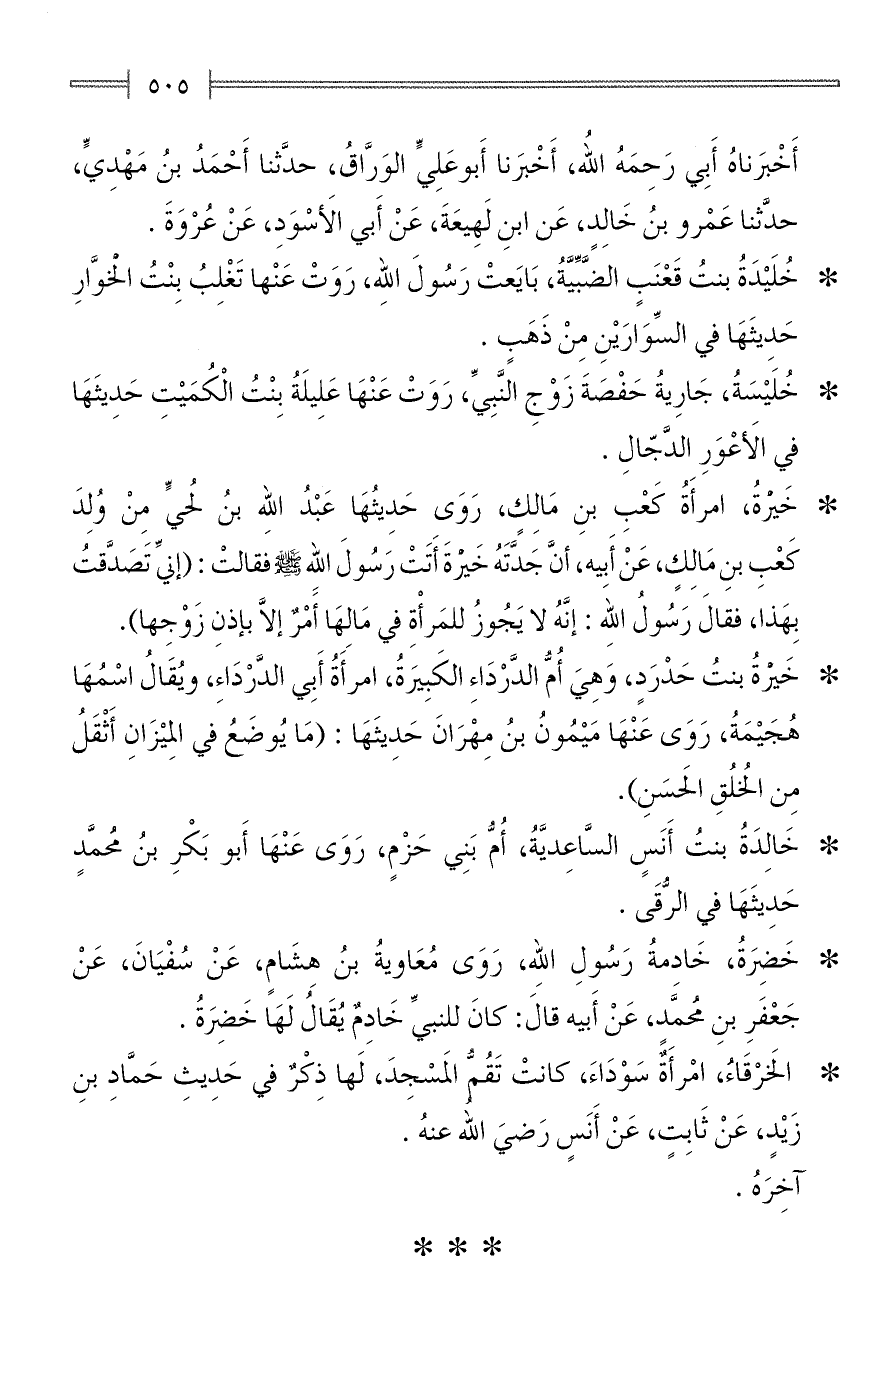 ٥٠٥
أَخْبَرَناهُ أَبِي رَحِمَهُ اللهُ، أَخْبَرَنا أَبوعَلِيٍّ الوَرَّاقُ، حدَّثنا أَحْمَدُ بنُ مَهْدِيٍّ،
حدَّثنا عَمْرو بنُ خَالِدٍ، عَن ابنِ لَهِيعَةَ، عَنْ أَبي الأَسْوَدِ، عَنْ عُرْوَةَ .
* خُلَيْدَةُ بنتُ قَعْنَبٍ الضَّبِّيَّةُ، بَايَعتْ رَسُولَ اللهِ، رَوَتْ عَنْها تَغْلِبُ بِنْتُ الخُوَّارِ
حَدِيثَهَا في السِّوَارَيْنِ مِنْ ذَهَبٍ .
* خُلَيْسَةُ، جَارِيةُ حَفْصَةَ زَوْجِ النَّبِيِّ، رَوَتْ عَنْهَا عَلِيلَةُ بِنْتُ الْكُمَيْتِ حَدِيثَهَا
في الأَعْوَرِ الدَّجّالِ .
* خَيْرَةُ، امرأَةُ كَعْبِ بنِ مَالِكٍ، رَوَى حَدِيثُهَا عَبْدُ اللهِ بنُ لُحَيٍّ مِنْ وُلِدَ
كَعْبِ بنِ مَالِكٍ، عَنْ أَبيهِ، أنَّ جَدَّتَهُ خَيْرَةَ أَتَتْ رَسُولَ اللهِ ﷺ فقالتْ : (إنيِّ تَصَدَّقتُ
بِهَذا، فقالَ رَسُولُ اللهِ : إنَّهُ لا يَجُوزُ للمَرأَةِ في مَالِهَا أَمْرٌ إلاَّ بإذنِ زَوْجِها).
* خَيْرَةُ بنتُ حَدْرَدٍ، وَهِيَ أُمُّ الدَّرْدَاءِ الكَبِيرَةُ، امرأَةُ أَبي الدَّرْدَاءِ، ويُقَالُ اسْمُهَا
هُجَيْمَةُ، رَوَى عَنْهَا مَيْمُونُ بنُ مِهْرَانَ حَدِيثَهَا : (مَا يُوضَعُ في المِيْزَانِ أَثْقَلُ
مِن الخُلُقِ الحَسَنِ).
* خَالِدَةُ بنتُ أَنَسٍ السَّاعِديَّةُ، أُمُّ بَنِي حَزْمٍ، رَوَى عَنْهَا أَبو بَكْرِ بنُ مُحمَّدٍ
حَدِيثَهَا في الرُّقَى .
* خَضِرَةُ، خَادمةُ رَسُولِ اللهِ، رَوَى مُعَاوِيةُ بنُ هِشَامٍ، عَنْ سُفْيَانَ، عَنْ
جَعْفَرِ بنِ مُحمَّدٍ، عَنْ أَبيهِ قالَ : كانَ للنبيِّ خَادِمٌ يُقَالُ لَهَا خَضِرَةُ .
* الخَرْقَاءُ، امْرأَةٌ سَوْدَاءَ، كانتْ تَقُمُّ المَسْجِدَ، لَها ذِكْرٌ في حَدِيثِ حَمَّادِ بنِ
زَيْدٍ، عَنْ ثَابِتٍ، عَنْ أَنَسٍ رَضيَ اللهُ عنهُ .
آخِرَهُ .
* * *